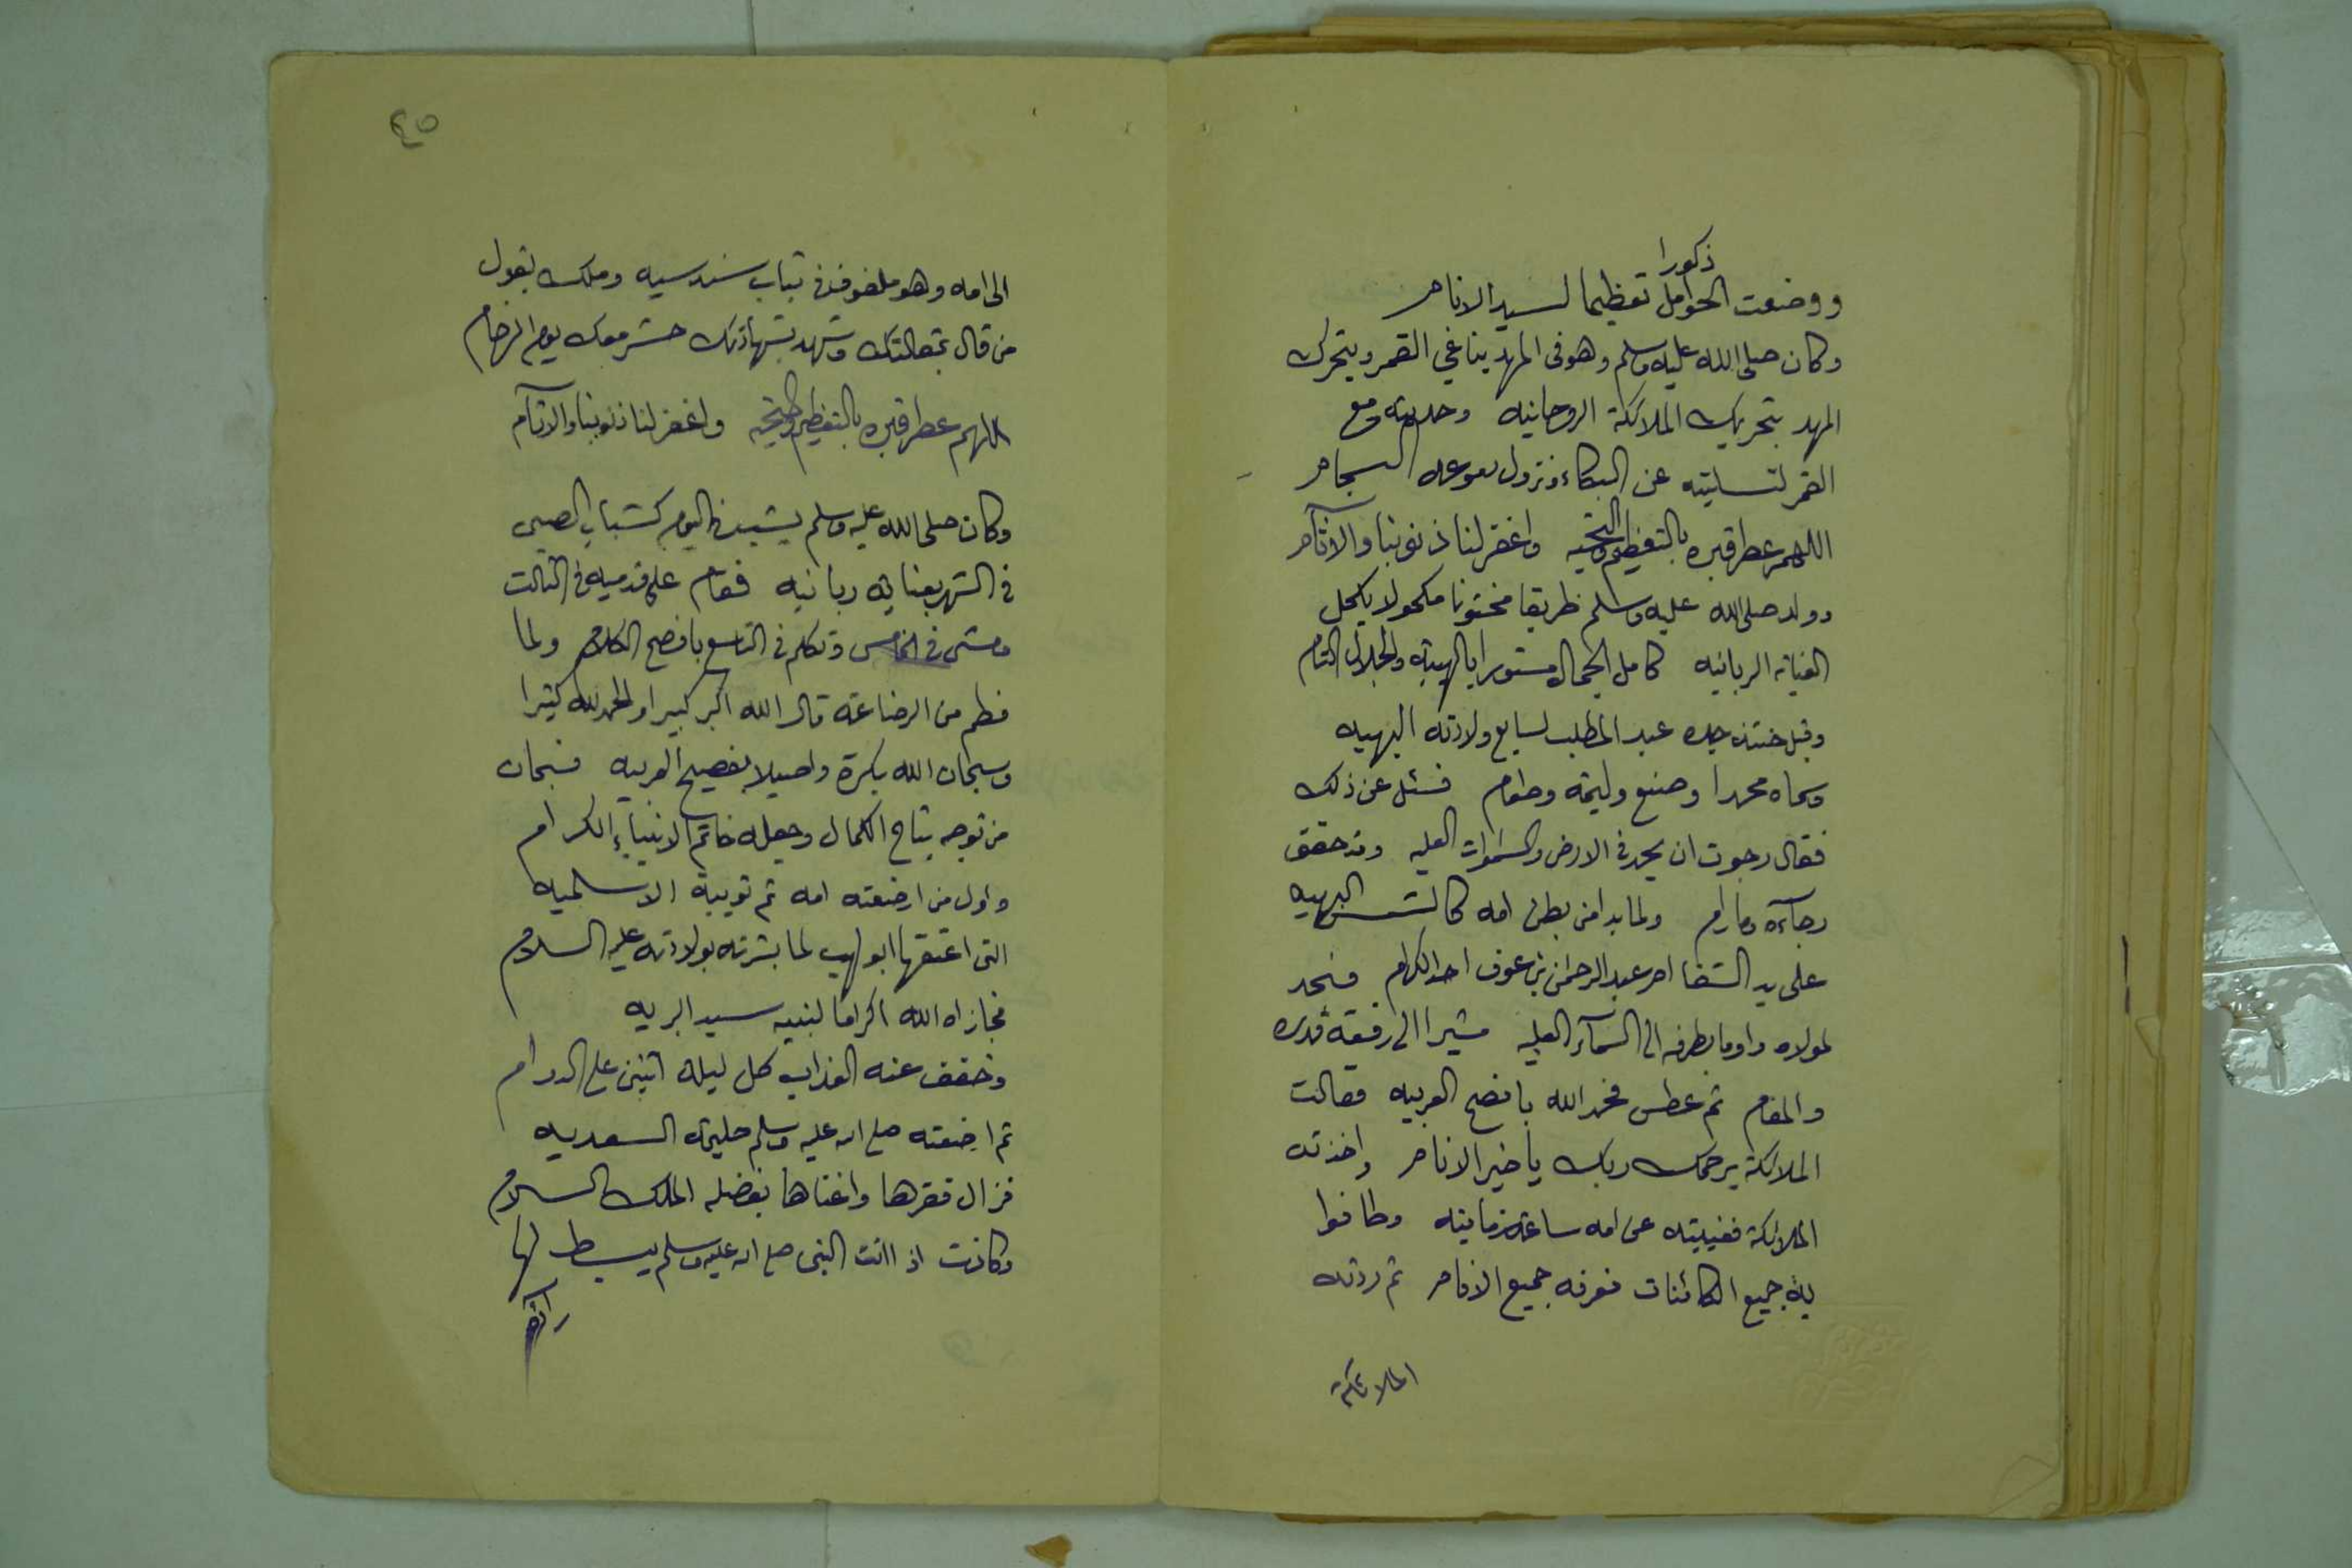 ذكورا
ووضعت الحوامل تعظيما لسيد الانام
وكان صلى الله عليه وسلم وهو فى المهد يناغي القمر ويتحرك
المهد بتحريك الملائكة الروحانيه وحديثه مع
القمر لتسليته عن البكاء ونزول دموعه السجام
اللهم عطر قبره بالتعظيم والتحيه واغفر لنا ذنوبنا والاثآم
وولد صلى الله عليه وسلم نظيفا مختونا مكحولا بكحل
العنايه الربانيه كامل الجمال مستورا بالهيبة والجلال التام
وقيل ختنه جده عبد المطلب لسابع ولادته البهيه
وسماه محمدا وصنع وليمة وطعام فسئل عن ذلك
فقال رجوت ان يحمد في الارض والسموات العليه وقد حقق
رجآءه ومارام ولما بدا من بطن امه كالشمس البهيه
على يد الشفا ام عبد الرحمن بن عوف احد الكرام فسجد
لمولاه واوما بطرفه الى السمآء العليه مشيرا الى رفعة قدره
والمقام ثم عطس فحمد الله بافصح العربيه فقالت
الملائكة يرحمك ربك يا خير الانام واخذته
الملائكة فغيبته عن امه ساعة زمانيه وطافوا
به جميع الكائنات فعرفه جميع الانام ثم ردته
الملائكة
٤٥
الى امه وهو ملفوف في ثياب سندسيه وملك يقول
من قال بمقالتك وشهد بشهادتك حشر معك يوم الزحام
اللهم عطر قبره بالتعظيم والتحيه واغفر لنا ذنوبنا والاثآم
وكان صلى الله عليه وسلم يشب في اليوم كشباب الصبي
في الشهر بعنايه ربانيه فقام على قدميه في الثالث
ومشى في الخامس وتكلم في التاسع بافصح الكلام ولما
فطم من الرضاعة قال الله اكبر كبيرا والحمد لله كثيرا
وسبحان الله بكرة واصيلا بفصيح العربيه فسبحان
من توجه بتاج الكمال وجعله خاتم الانبياء الكرام
واول من ارضعته امه ثم ثويبة الاسلميه
التى اعتقها ابو لهب لما بشرته بولادته عليه السلام
فجازاه الله اكراما لنبيه سيد البريه
وخفف عنه العذاب كل ليلة اثنين على الدوام
ثم ارضعته صلى الله عليه وسلم حليمة السعديه
فزال فقرها واغناها بفضله الملك السلام
وكانت اذا اتت النبى صلى الله عليه وسلم يبسط لها